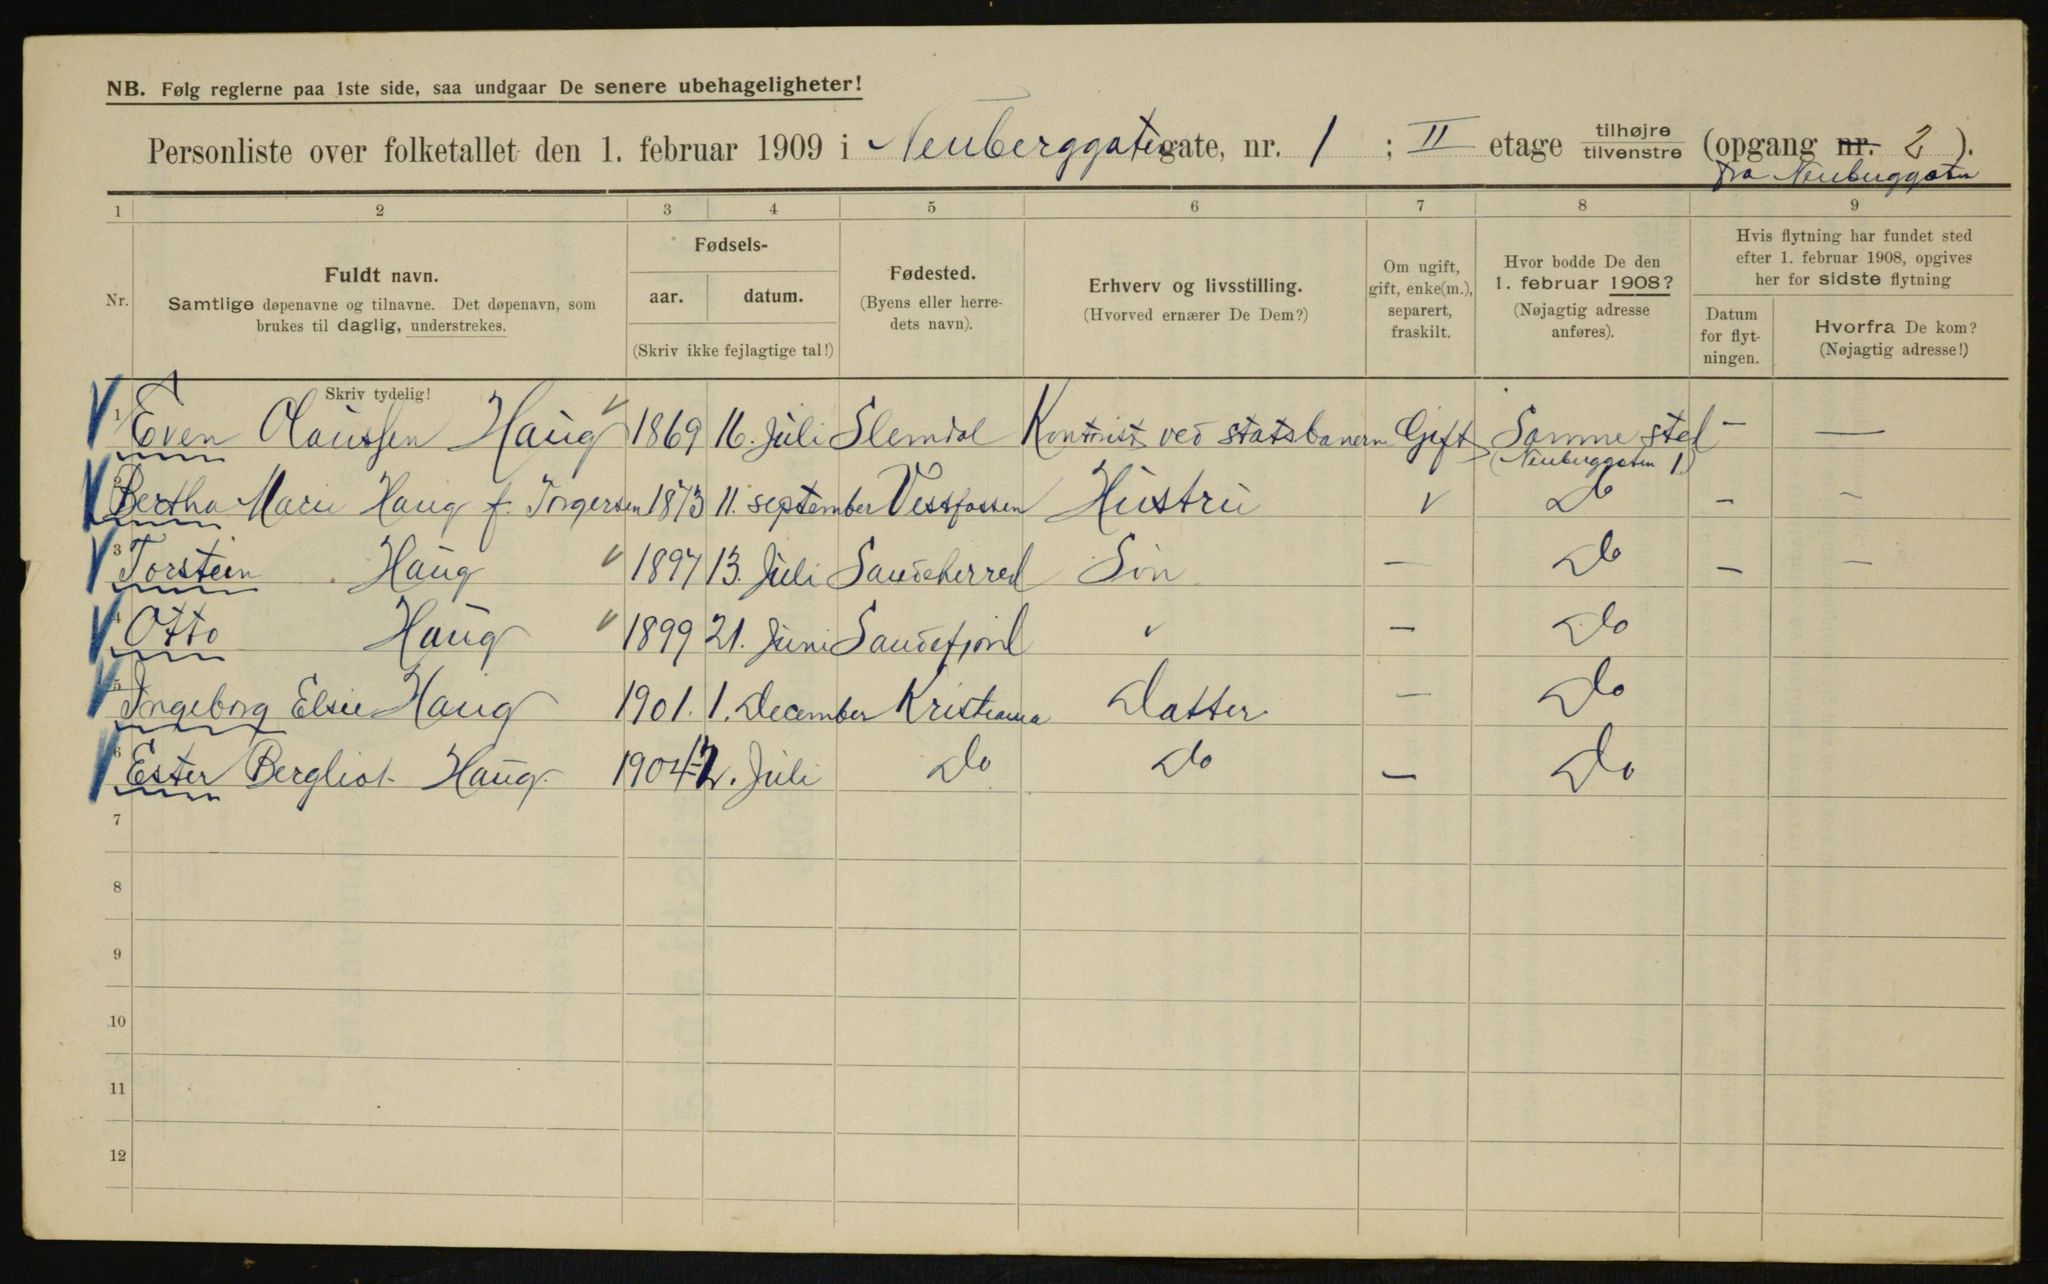 NB. Følg reglerne paa 1ste side, saa undgaar De senere ubehageligheter!
Personliste over folketallet den 1. februar 1909 i Neuberggatengate, nr. 1 ; II etage tilhøjre tilvenstre (opgang nr. 2 ).
fra Neuberggaten
1 2 3 4 5 6 7 8 9
Nr. Fuldt navn. Samtlige døpenavne og tilnavne. Det døpenavn, som brukes til daglig, understrekes.
Fødsels- aar. datum. (Skriv ikke fejlagtige tal!)
Fødested. (Byens eller herredets navn).
Erhverv og livsstilling. (Hvorved ernærer De Dem?)
Om ugift, gift, enke(m.), separert, fraskilt.
Hvor bodde De den 1. februar 1908? (Nøjagtig adresse anføres).
Hvis flytning har fundet sted efter 1. februar 1908, opgives her for sidste flytning
Datum for flytningen.
Hvorfra De kom? (Nøjagtig adresse!)
Skriv tydelig!
1 Even Claussen Haug 1869 16. Juli Slemdal Kontorist ved statsbanern Gift Samme sted - —
(Neuberggaten 1.)
2 Bertha Marie Haug f. Torgersen 1873 11. september Vestfossen Hustru v Do - -
3 Torstein Haug 1897 13. Juli Sandeherred Søn - Do - -
4 Otto Haug 1899 21. Juni Sandefjord " - Do
5 Ingeborg Elsie Haug 1901. 1. December Kristiania Datter - Do
6 Ester Bergliot Haug. 1904 12. Juli Do Do - Do
7
8
9
10
11
12